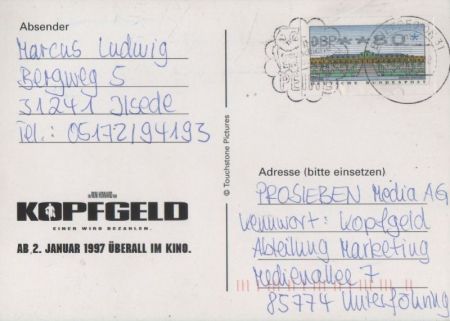 Absender
Marcus Ludwig
Bergweg 5
31241 Ilsede
Tel.: 05172/94193
EIN RON HOWARD FILM
KOPFGELD
EINER WIRD BEZAHLEN.
AB 2. JANUAR 1997 ÜBERALL IM KINO.
© Touchstone Pictures
DBP
80
DEUTSCHE BUNDESPOST
Adresse (bitte einsetzen)
PROSIEBEN Media AG
Kennwort: Kopfgeld
Abteilung Marketing
Medienallee 7
85774 Unterföhring